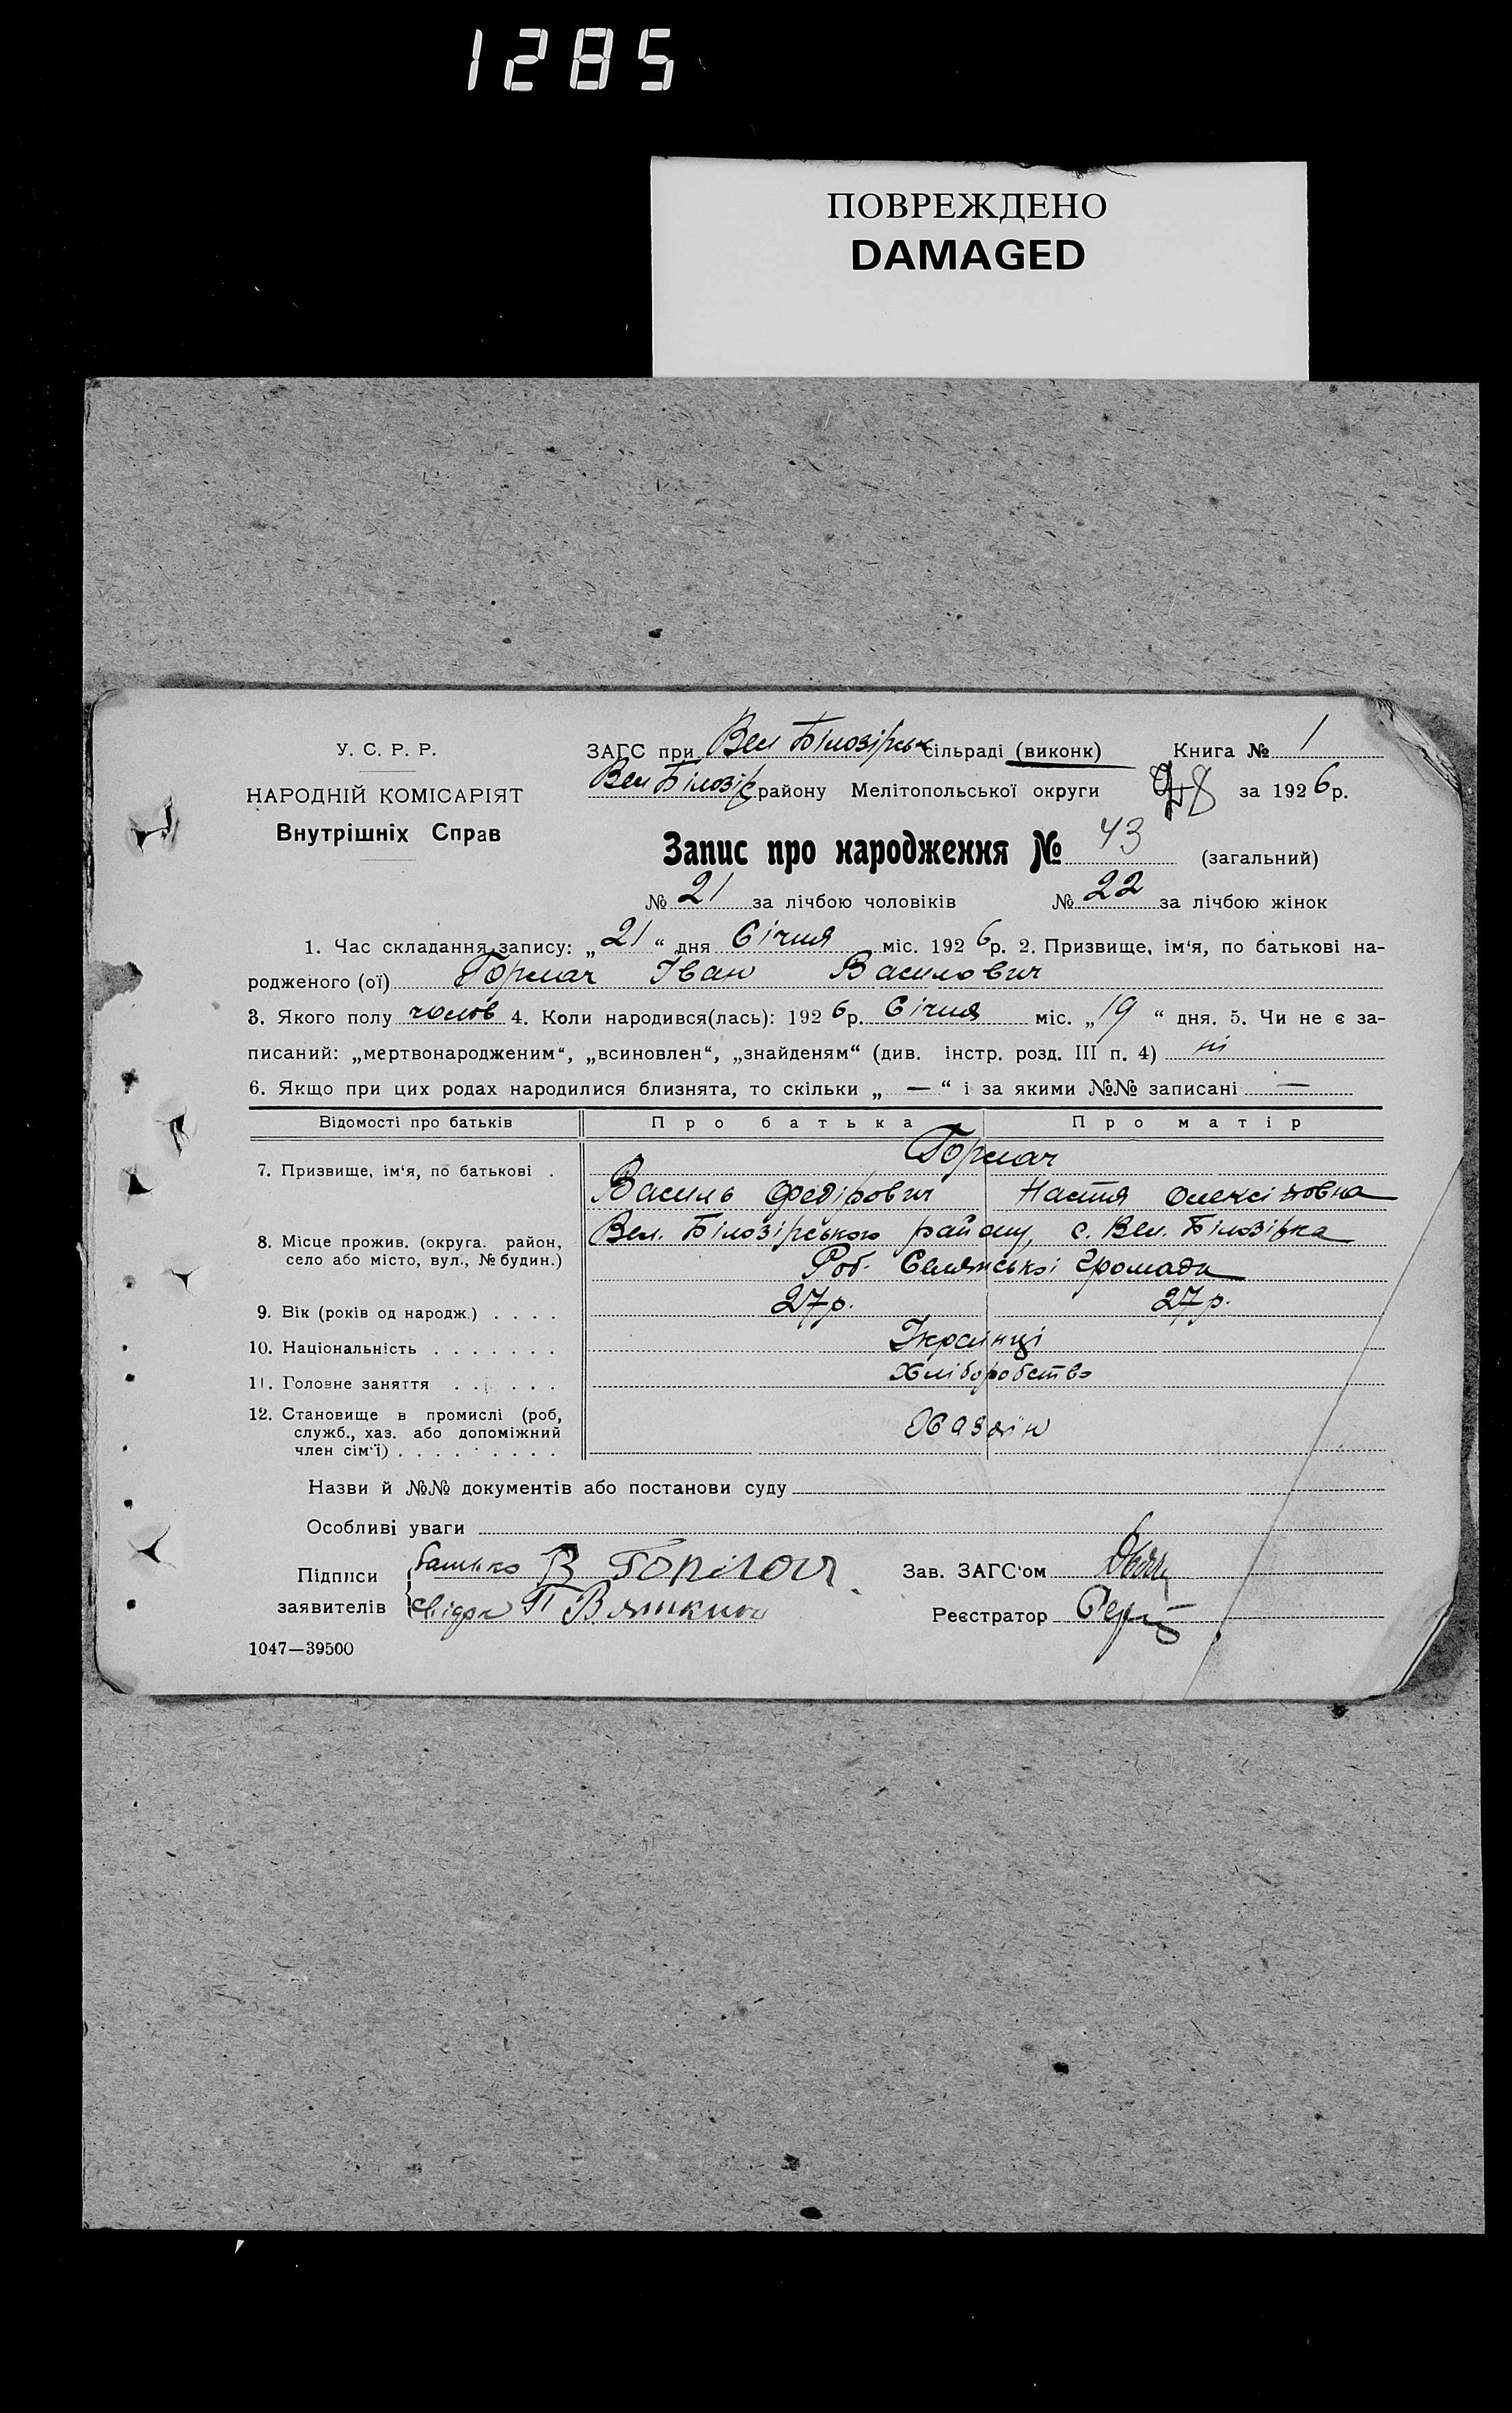 1285
ПОВРЕЖДЕНО
DAMAGED
У. С. Р. Р.
НАРОДНІЙ КОМІСАРІЯТ
Внутрішніх Справ
ЗАГС при Вел Білозірськ сільраді (виконк) Книга № 1
Вел Білозір району Мелітопольської округи 8 за 1926 р.
Запис про народження № 43 (загальний)
№ 21 за лічбою чоловіків № 22 за лічбою жінок
1. Час складання запису: „21“ дня Січня міс. 1926 р. 2. Призвище, ім‘я, по батькові на-
родженого (ої) Горлач Іван Василович
3. Якого полу чолов 4. Коли народився(лась): 1926 р. Січня міс. „19“ дня. 5. Чи не є за-
писаний: „мертвонародженим“, „всиновлен“, „знайденям“ (див. інстр. розд. III п. 4) ні
6. Якщо при цих родах народилися близнята, то скільки „ — “ і за якими №№ записані —
Відомості про батьків Про батька Про матір
7. Призвище, ім‘я, по батькові . Горлач
Василь Федірович Настя Олексіївна
8. Місце прожив. (округа. район,
село або місто, вул., № будин.)
Вел. Білозірського району, с. Вел. Білозірка
Роб. Селянської Громади
9. Вік (років од народж.) . . . . 27 р. 27 р.
10. Національність . . . . . . . Українці
11. Головне заняття . . . . . . Хліборобство
12. Становище в промислі (роб,
служб., хаз. або допоміжний
член сім‘ї) . . . . . . . . .
Назви й №№ документів або постанови суду
Особливі уваги
Підписи
заявителів
батько В Горлач
Свідок П
Зав. ЗАГС‘ом
Реєстратор
1047—39500